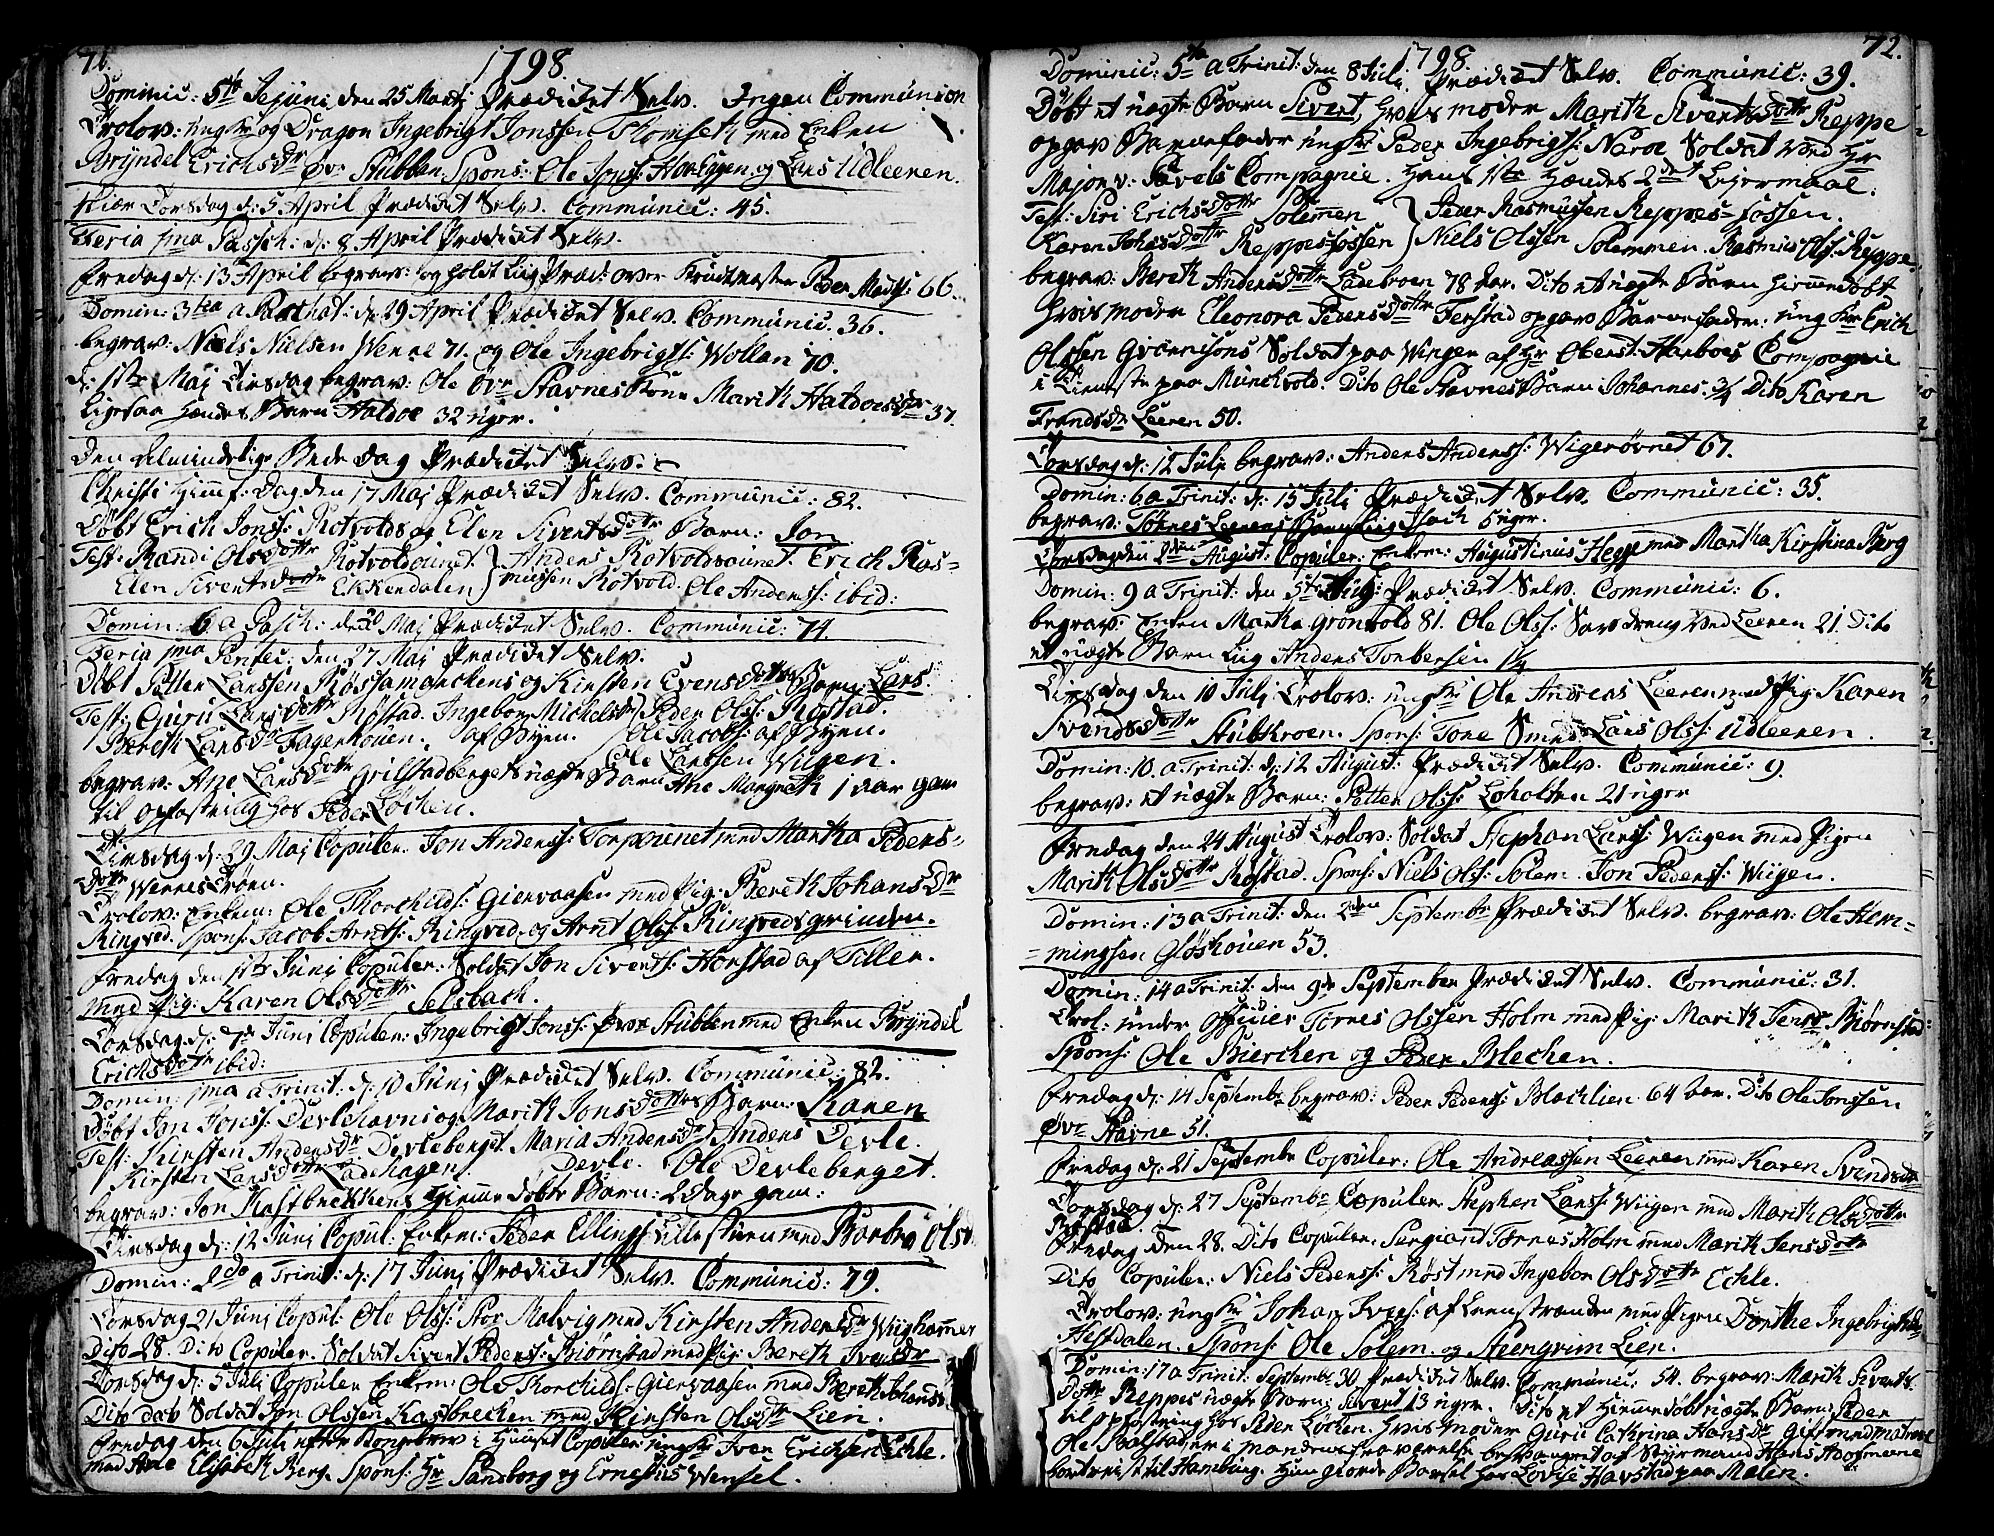 71.
1798.
Dominic: 5te Jejuni, den 25 Martj Prædicket Selv. Ingen Communion
Trolov: ungKr og Dragon Ingebrigt Jonssen Flomseth med Enken
Bryndel Erichsdr øvr Stubben. Spons: Ole Jonss: Hoeggen og Lars Udleeren.
Skiær Torsdag d: 5 April Prædicket Selv. Communic: 45.
Feria 1ma Pasch: d: 8 April Prædicket Selv.
Fredag d: 13 April begrav: og holdt Liig Præd: over Peder Madss: 66.
Domin: 3tia a Paschat: d: 29 April Prædicket Selv. Communic. 36.
begrav: Niels Nielsen Wenne 71. og Ole Ingebrigts: Wollan 70.
d: 1ste Maj Tirsdag begrav: Ole øvr Stavnes Kone Marith Haldorsdr 37.
Ligesaa hendes Barn Haldor 32 uger.
Den almindelige Bede Dag Prædicket Selv.
Christi Himmf: Dag den 17 Maj Prædicket Selv. Communic: 82.
Døbt Erich Jonss: Rotvolds og Elen Sivertsdotr Barn: Jon
Test: Randi Olsdottr Rotvoldaunet. Anders Rotvoldaunet. Erich Ras-
Elen Sivertsdottr Ekkerdalen mussen Rotvold. Ole Anderss: ibid:
Domin: 6 a Pasch: den 20 Maj Prædicket Selv. Communic: 74.
Feria 1ma Pentec: den 27 Maj Prædicket Selv.
Døbt Petter Larssen Røstamarckens og Kirsten Evensdotters Barn: Lars.
Test: Guru Larsdottr Rostad. Ingebor Michelsdr Peder Olss: Rostad.
Bereth Larsdr Fagerhouen. af Byen. Ole Jacobs: af Byen.
Ole Larssen Wiigen.
begrav: Ane Larsdottr Grilstadbergets uægte Barn Ane Margreth 1 aar gam
til opfostring hos Peder Løcken.
Tirsdag d: 29 Maj Copuler. Jon Anderss: Torpaunet med Martha Peders-
dottr Wennestrøen.
Trolov: Enkem: Ole Thorchilds: Gienvaasen med Pig: Bereth Johansdr
Ringved. Spons: Jacob Arnts: Ringved og Arnt Olss: Ringvedsgrinden.
Fredag den 1ste Junj Copuler: Soldat Jon Siverts: Harstad af Tiller.
med Pig: Karen Olsdottr Selsbach.
Torsdag d: 7de Junj Copuler: Ingebrigt Jonss: øvr Stubben med Enken Bryndel
Erichsdottr ibid:
Domin: 1ma a Trinit: d: 10 Junj Prædicket Selv. Communic: 82.
Døbt Jon Jonss: Devlehavns og Marith Jonsdotters Barn: Karen
Test: Kirsten Andersdr Devleberget. Maria Andersdr Anders Devle.
Kirsten Larsdottr Ladehagen. Devle. Ole Devleberget.
begrav: Jon Kastbreckkens Hiemme døbte Barn: 2 Dage gam:
Tirsdag d: 12 Junj Copul: Enkem: Peder Ellingss: Lillestuen med Barbro Olsd
Domin: 2da a Trinit: d: 17 Junj Prædicket Selv. Communic: 79.
Torsdag 21 Junj Copul: Ole Olss: Stor Malvig med Kirsten Andersdr Wiighammer
Dito 28. Dito Copuler. Soldat Sivert Peders: Biørnstad med Pig: Bereth Iversdr
Torsdag d: 5 Julj Copuler Enkem: Ole Thorchilds: Gienvaasen med Bereth Johansdr
Dito dato Soldat Jon Olssen Kastbrecken med Kirsten Olsdr Lien.
Fredag den 6 Juli efter Kongebrev i Huuset Copuler ungKr Iver Erichsen Echle.
med Ane Elisbeth Berg. Spons: Hr Sandborg og Ernestus Wensel.
72.
1798.
Dominic: 5te a Trinit: den 8 Juli Prædicket Selv. Communic: 39.
Døbt et uægte Barn Sivert, hvis moder Marith Sivertsdottr Reppe
opgav Barnefader ungKr Peder Ingebrigts: Naroe Soldat ved Hr
Major v: Favels Compagnie. Hans 1ste Hendes 2det Leyermaal.
Test: Siri Erichsdottr Solemen Peder Rasmussen Reppesfossen.
Karen Johasdottr Reppesfossen Niels Olssen Solemmen. Rasmus Olss: Reppe.
begrav: Bereth Andersdottr Ladebroen 78 Aar. Dito et uægte Barn hiemmedøbt
hvis moder Eleonora Pedersdottr Ferstad opgav Barnefader: ungKr Erich
Olssen Soldat paa Wingen af Hr Oberst: Harboes Compagnie
i Tieneste paa Munchvold. Dito Ole Stavnes Barn Johannes: 3/4 Dito Karen
Frandsdr Leeren 50.
Torsdag d: 12 Julj begrav: Anders Anderss: Wigerøvnet 67.
Domin: 6 a Trinit: d: 15 Juli Prædicket Selv. Communic: 35.
begrav: Tørres Leerens Barn Liig Isach 6 uger.
Torsdag den 2den August: Copuler: Enkem: Augustinus Hegge med Martha Kirstina Berg
Domin: 9 a Trinit: den 5te Aug: Prædicket Selv. Communic: 6.
begrav: Enken Martha Grønvold 81. Ole Olss: Savdreng ved Leeren 21. Dito
et uægte Barn Liig Anders Torbersen 1/4
Tirsdag den 10 Julj Trolov: ungKr Ole Andreas Leeren med Pig: Karen
Svendsdottr Stubkroen. Spons: Tore Smed Lars Olss: Udleeren.
Domin: 10. a Trinit: d: 12 August: Prædicket Selv. Communic: 9.
begrav: et uægte Barn: Petter Olss: Loholten 21 uger
Fredag den 24 August Trolov: Soldat Stephan Larss: Wiigen med Pigen
Marith Olsdottr Rostad. Spons: Niels Olss: Solem. Jon Peders: Wiigen.
Domin: 13 a Trinit: den 2den Septembr Prædicket Selv. begrav: Ole Hem-
=mingsen Gløshouen 53.
Domin: 14 a Trinit: den 9de September Prædicket Selv. Communic: 31.
Trol: under officier Tørres Olssen Holm med Pig: Marith Jensdr Biørnstad:
Spons: Ole Bierchen og Peder Blechen.
Fredag d: 14 Septembr begrav: Peder Peders: Blachlien 64 Aar. Dito Ole Jonssen
Øvr Stavne 51.
Fredag d: 21 Septembr Copuler: Ole Andreassen Leeren med Karen Svendsdr
Torsdag d: 27 Septembr Copuler. Stephen Larss: Wiigen med Marith Olsdottr
Rostad.
Fredag den 28. Dito Copuler. Sergiant Tørres Holm med Marith Jensdotr
Dito Copuler: Niels Peders: Røst med Ingebor Olsdottr Echle.
Trolov: ungKr Johan Ivers: af Leenstranden med Pigen Dorthe Ingebrigtsdr
Hestdalen. Spons: Ole Solem. og Steengrim Lien.
Domin: 17 a Trinit: Septembr 30 Prædicket Selv. Communic: 54. begrav: Marith Siverts
dottr Reppes uægte Barn: Sivert 13 uger. Dito et hiemmedøbt uægte Barn: Peder
til opfostring hos Peder Løcken. hvis moder Guru Cathrina Hansdr Gift med matros
Ole Skalstad er i mandens fraværelse besvangret af Styrmand Hans
bortreist til Hamburg. Hun giorde Barsel hos Lovise Havstad paa Møllen.